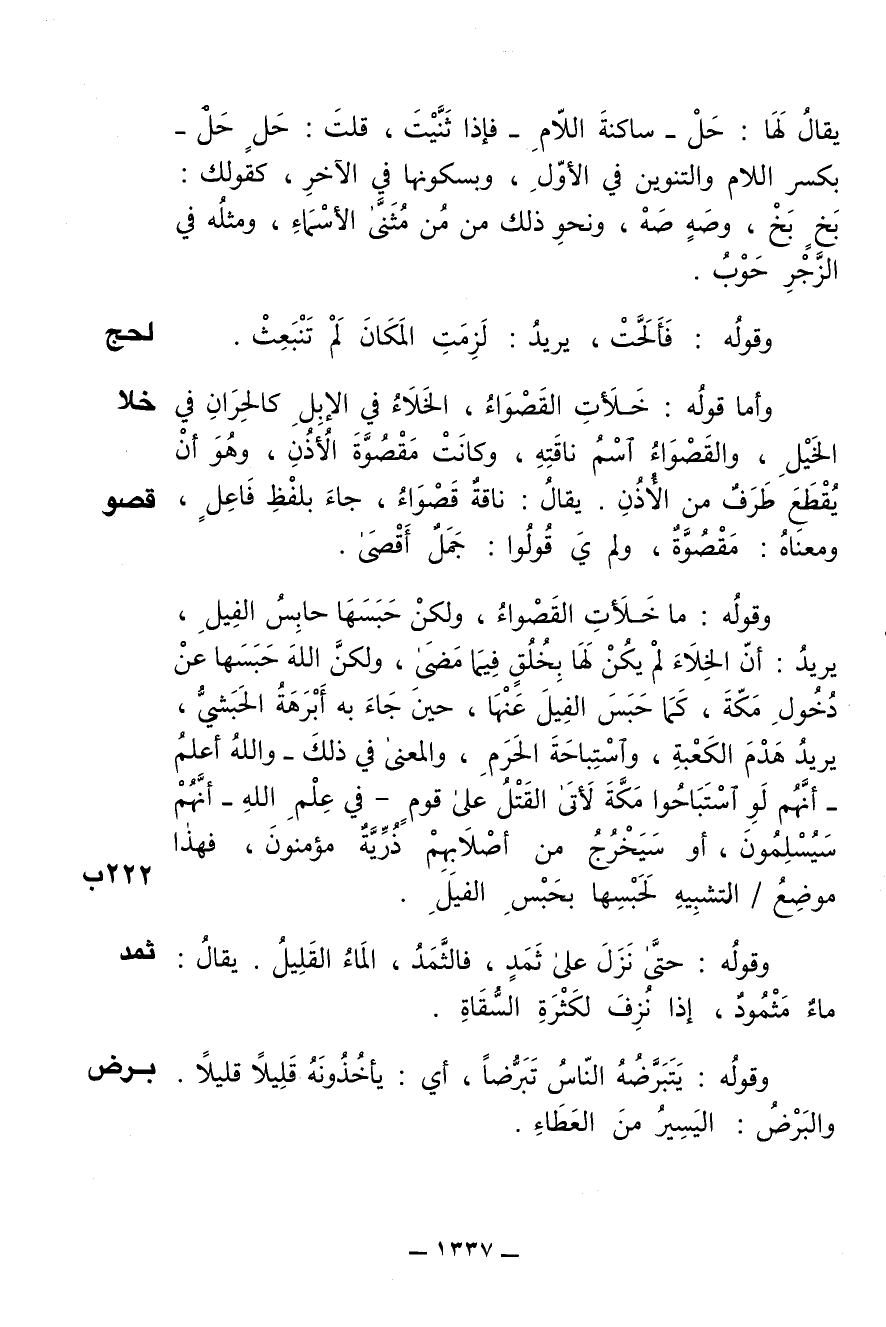 يقالُ لَهَا : حَلْ ـ ساكنةَ اللّامِ ـ فإذا ثَنَّيْتَ ، قلتَ : حَلٍ حَلْ ـ
بكسر اللام والتنوين في الأوّلِ ، وبسكونها في الآخرِ ، كقولك :
بَخٍ بَخْ ، وصَهٍ صَهْ ، ونحوِ ذلك من مُن مُثَنىَّ الأسْمَاءِ ، ومثلُه في
الزَّجْرِ حَوْبُ .
وقولُه : فَأَلَحَّتْ ، يريدُ : لَزِمَتِ المَكَانَ لَمْ تَنْبَعِثْ . لحج
وأما قولُه : خَـلَأتِ القَصْوَاءُ ، الخَلَاءُ في الإبِلِ كالحِرَانِ في خلا
الخَيْلِ ، والقَصْوَاءُ ٱسْمُ ناقَتِهِ ، وكانَتْ مَقْصُوَّةَ الأُذُنِ ، وهُوَ أنْ
يُقْطَعَ طَرَفٌ من الأُذُنِ . يقالُ : ناقةٌ قَصْوَاءُ ، جاءَ بلفْظِ فَاعِلٍ ، قصو
ومعنَاهُ : مَقْصُوَّةٌ ، ولم يَ قُولُوا : جَمَلٌ أَقْصَىٰ .
وقولُه : ما خَـلَأتِ القَصْواءُ ، ولكنْ حَبَسَهَا حابِسُ الفِيلِ ،
يريدُ : أنّ الخِلَاءَ لَمْ يكُنْ لَهَا بِخُلُقٍ فِيمَا مَضَىٰ ، ولكنَّ اللهَ حَبَسَها عنْ
دُخُولِ مَكّةَ ، كَمَا حَبَسَ الفِيلَ عَنْهَا ، حينَ جَاءَ به أَبْرَهَةُ الحَبَشيُّ ،
يريدُ هَدْمَ الكَعْبةِ ، وٱسْتِباحَةَ الحَرَمِ ، والمعنىٰ في ذلكَ ـ واللهُ أعلمُ
ـ أنَّهُم لَوِ ٱسْتَبَاحُوا مَكَّةَ لَأتَىٰ القَتْلُ علىٰ قومٍ - في عِلْمِ اللهِ ـ أنَّهُمْ
سَيُسْلِمُونَ ، أو سَيَخْرُجُ من أصْلَابِهِمْ ذُرِّيَّةٌ مؤمنونَ ، فهذٰا
موضِعُ / التشبِيهِ لَحَبْسِها بحَبْسِ الفيَلِ . ٢٢٢ب
وقولُه : حتىَّ نَزَلَ علىٰ ثَمَدٍ ، فالثَّمَدُ ، المَاءُ القَلِيلُ . يقالُ : ثمد
ماءٌ مَثْمُودٌ ، إذا نُزِفَ لكَثْرَةِ السُّقَاةِ .
وقولُه : يَتَبَرَّضُهُ النّاسُ تَبَرُّضاً ، أي : يأخُذُونَهُ قَلِيلًا قليلًا . بـرض
والبَرْضُ : اليَسِيرُ منَ العَطَاءِ .
ـ ١٣٣٧ ـ